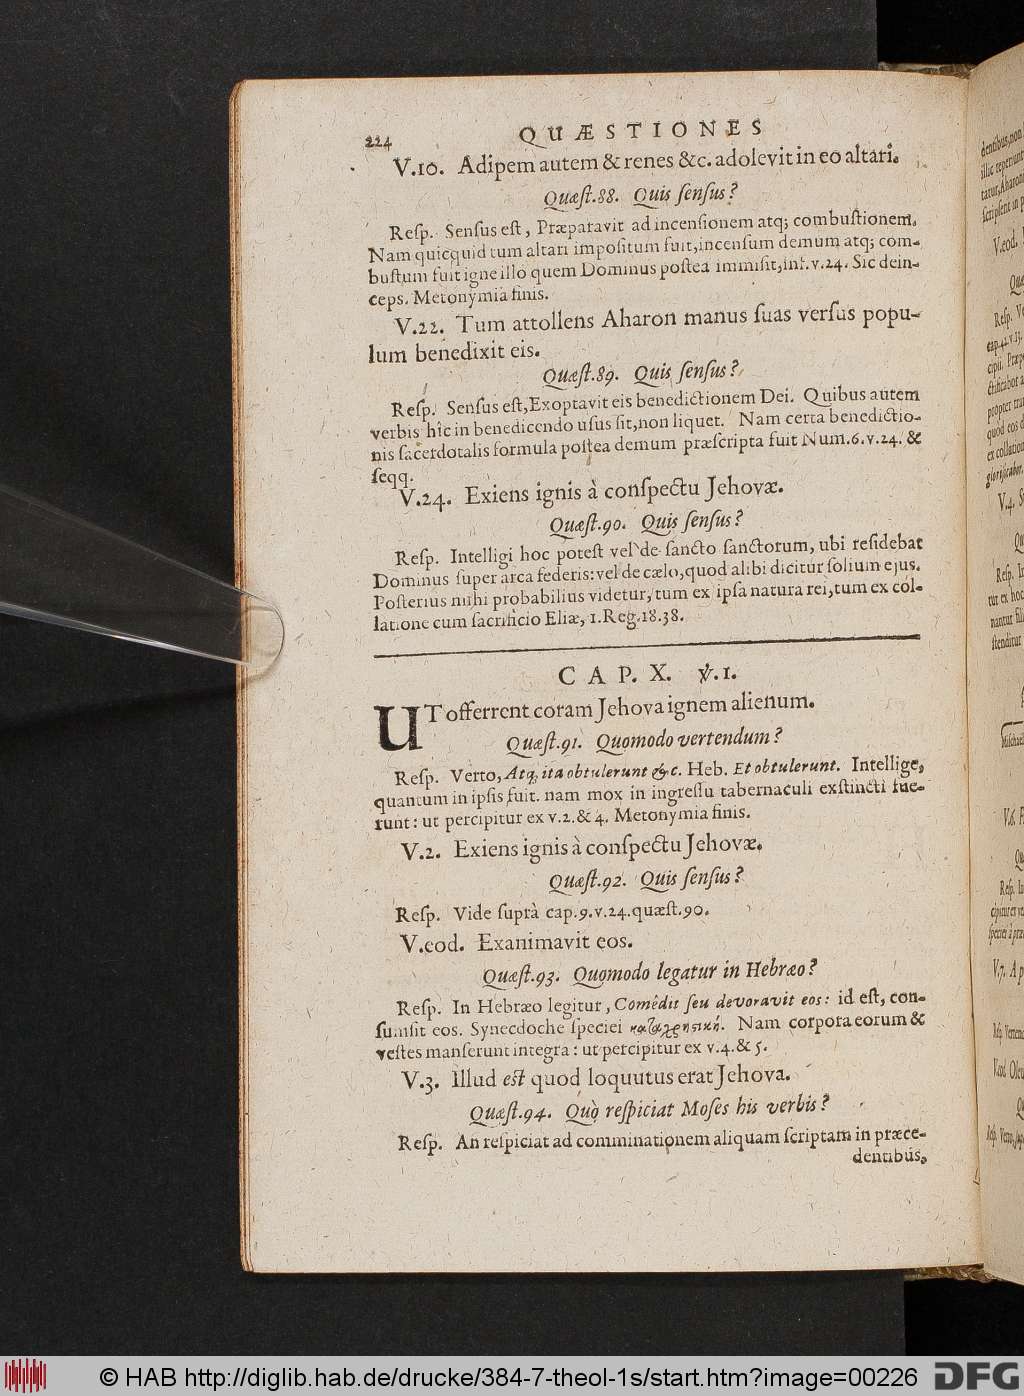 224 QUÆSTIONES
V.10. Adipem autem & renes &c. adolevit in eo altari.
Quæſt.88. Quis ſenſus?
Reſp. Senſus eſt, Præparavit ad incenſionem atq; combuſtionem.
Nam quicquid tum altari impoſitum fuit, incenſum demum atq; com-
buſtum fuit igne illo quem Dominus poſtea immiſit, inf. v.24. Sic dein-
ceps. Metonymia finis.
V.22. Tum attollens Aharon manus ſuas verſus popu-
lum benedixit eis.
Quæſt.89. Quis ſenſus?
Reſp. Senſus eſt, Exoptavit eis benedictionem Dei. Quibus autem
verbis hîc in benedicendo uſus ſit, non liquet. Nam certa benedictio-
nis ſacerdotalis formula poſtea demum præſcripta fuit Num.6.v.24. &
ſeqq.
V.24. Exiens ignis à conſpectu Jehovæ.
Quæſt.90. Quis ſenſus?
Reſp. Intelligi hoc poteſt vel de ſancto ſanctorum, ubi reſidebat
Dominus ſuper arca fœderis: vel de cælo, quod alibi dicitur ſolium ejus.
Poſterius mihi probabilius videtur, tum ex ipſa natura rei, tum ex col-
latione cum ſacrificio Eliæ, 1.Reg.18.38.
CAP. X. ℣.1.
UT offerrent coram Jehova ignem alienum.
Quæſt.91. Quomodo vertendum?
Reſp. Verto, Atq; ita obtulerunt &c. Heb. Et obtulerunt. Intellige,
quantum in ipſis fuit. nam mox in ingreſſu tabernaculi exſtincti fue-
runt: ut percipitur ex v.2. & 4. Metonymia finis.
V.2. Exiens ignis à conſpectu Jehovæ.
Quæſt.92. Quis ſenſus?
Reſp. Vide ſuprà cap.9.v.24.quæſt.90.
V.eod. Exanimavit eos.
Quæſt.93. Quomodo legatur in Hebræo?
Reſp. In Hebræo legitur, Comêdit ſeu devoravit eos: id eſt, con-
ſumſit eos. Synecdoche ſpeciei καταχρηστική. Nam corpora eorum &
veſtes manſerunt integra: ut percipitur ex v.4. & 5.
V.3. Illud est quod loquutus erat Jehova.
Quæſt.94. Quò reſpiciat Moſes his verbis?
Reſp. An reſpiciat ad comminationem aliquam ſcriptam in præce-
dentibus,
© HAB http://diglib.hab.de/drucke/384-7-theol-1s/start.htm?image=00226
DFG